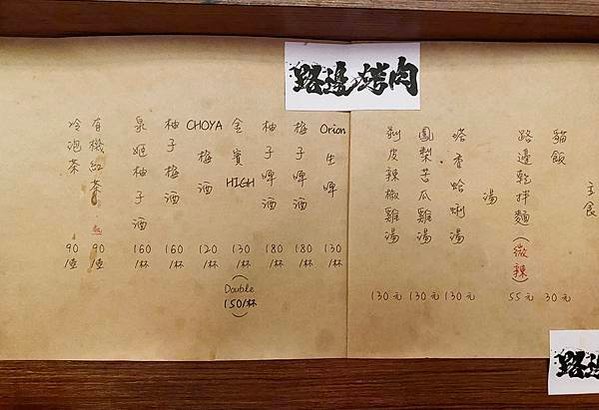 路邊烤肉
主食
貓飯
30元
路邊乾拌麵(微辣)
55元
湯
塔香蛤蜊湯
130元
鳳梨苦瓜雞湯
130元
剝皮辣椒雞湯
130元
Orion生啤
130/杯
梅子啤酒
180/杯
柚子啤酒
180/杯
金賓HIGH
130/杯
(Double 150/杯)
CHOYA梅酒
120/杯
柚子梅酒
160/杯
泉姬柚子酒
160/杯
有機紅茶
90/壺
冷泡茶
90/壺
路邊